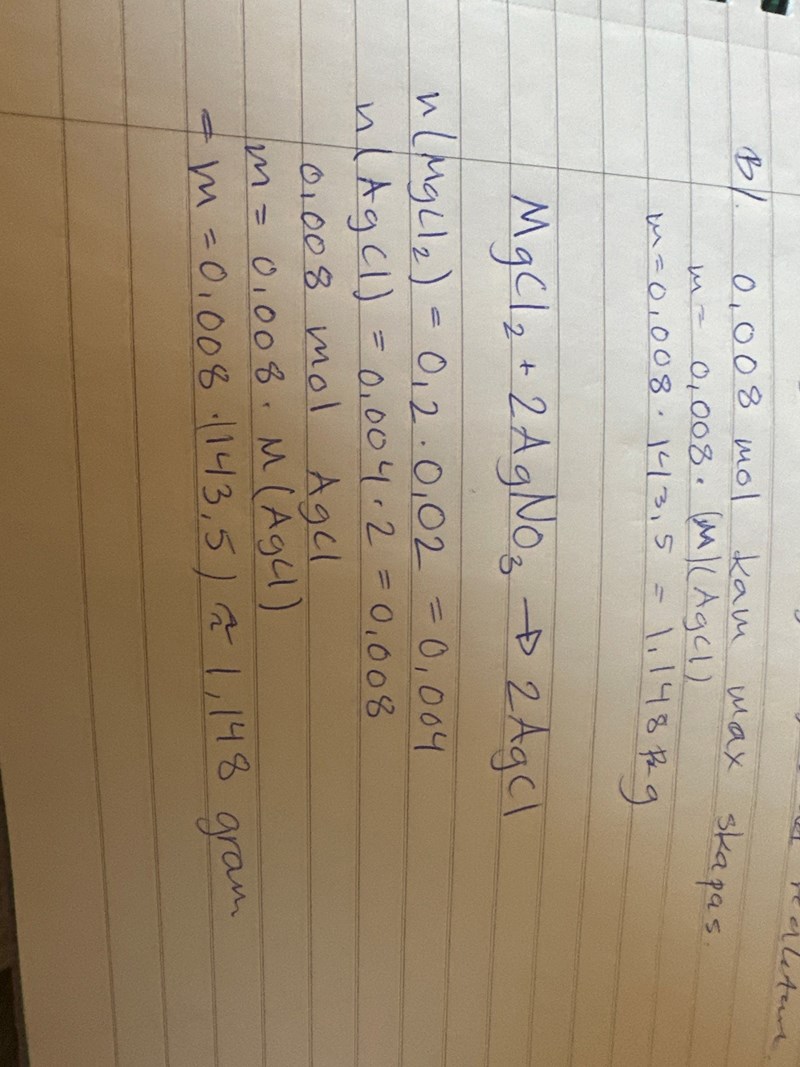 B/. 0,008 mol kam max skapas.
m = 0,008 · (M)(AgCl)
m = 0,008 · 143,5 = 1,148 g
MgCl₂ + 2AgNO₃ → 2AgCl
n(MgCl₂) = 0,2 · 0,02 = 0,004
n(AgCl) = 0,004 · 2 = 0,008
0,008 mol AgCl
m = 0,008 · M(AgCl)
= m = 0,008 · (143,5) ≈ 1,148 gram